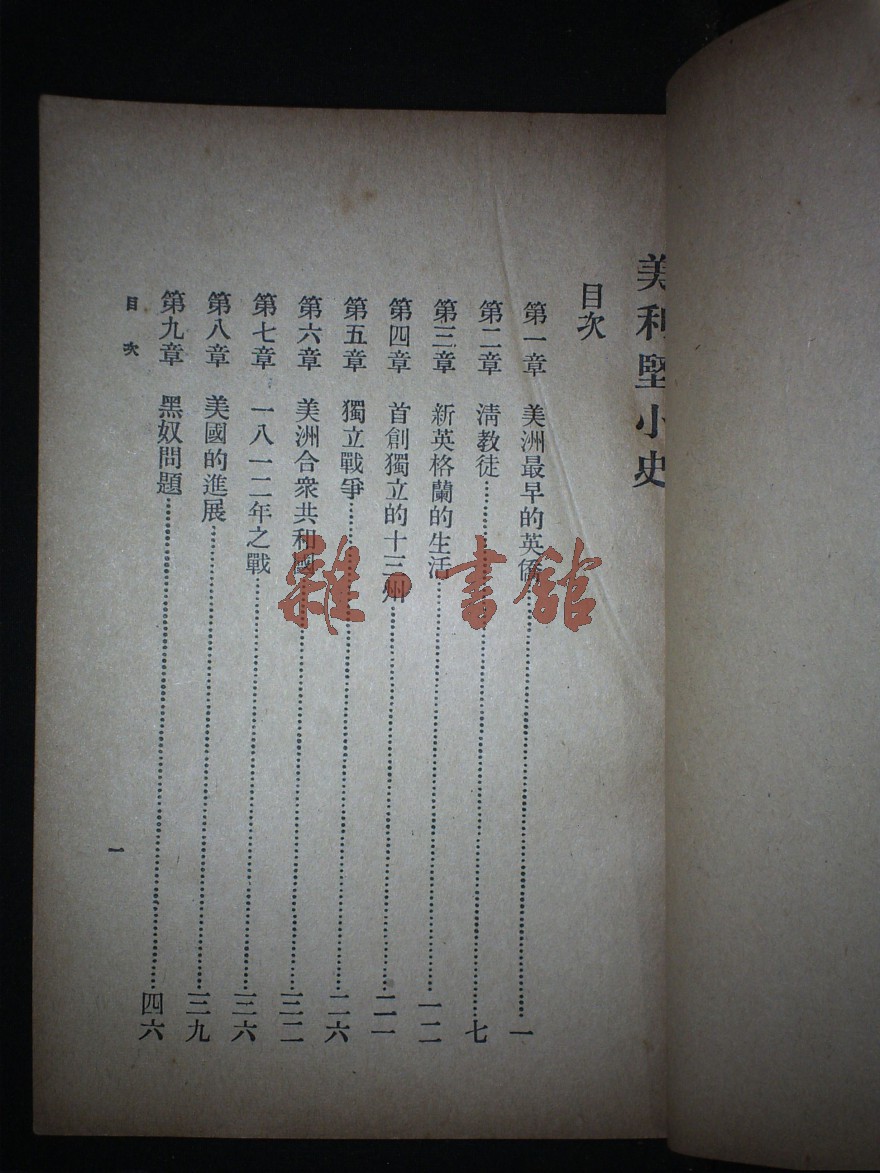 美利堅小史
目次
第一章 美洲最早的英僑 一
第二章 淸教徒 七
第三章 新英格蘭的生活 一二
第四章 首創獨立的十三州 二一
第五章 獨立戰爭 二六
第六章 美洲合衆共和國 三二
第七章 一八一二年之戰 三六
第八章 美國的進展 三九
第九章 黑奴問題 四六
目次 一
雜·書館